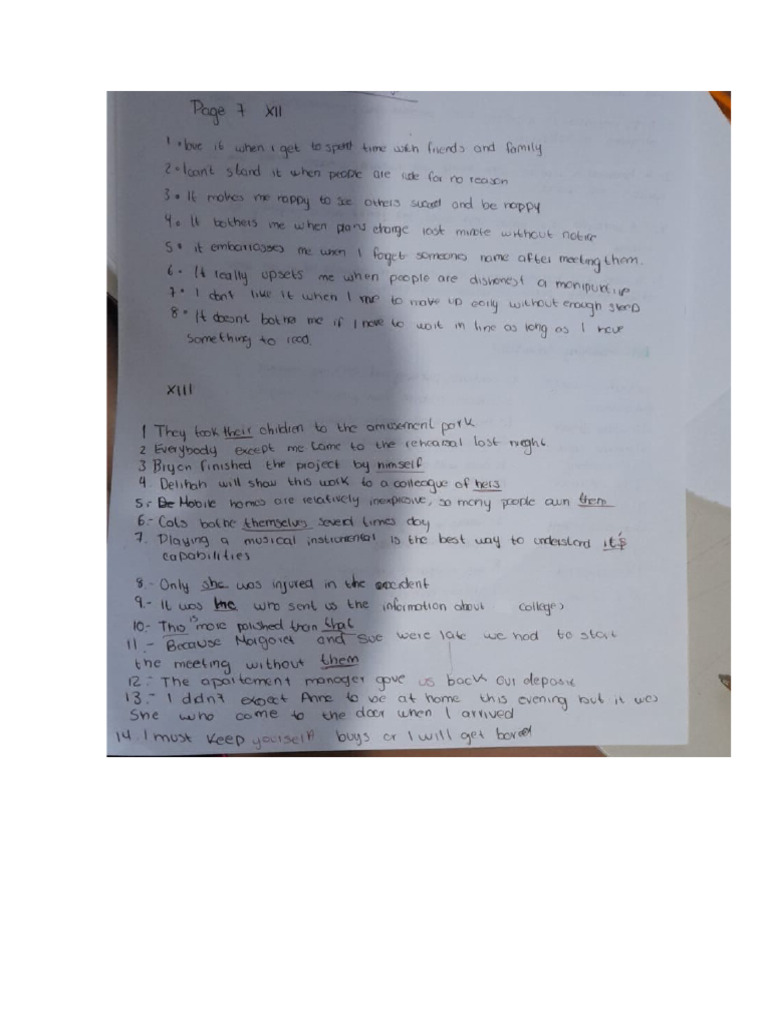 Page 7 XII
1 • love it when i get to spent time with friends and family
2 • I cant stand it when people are rude for no reason
3 • It makes me happy to see others suceed and be happy
4 • It bothers me when plans change last minute without notice
5 • it embarrasses me when I foget someones name after meeting them.
6 • It really upsets me when people are dishonest a
7 • I dont like it when I to wake up early without enough sleep
8 • It doesnt bother me if I have to wait in line as long as I have
something to read.
XIII
1 They took their children to the amusement park
2 Everybody except me came to the rehearsal last night
3 Bryon finished the project by himself
4. Delihah will show this work to a colleague of hers
5.- Mobile homes are relatively inexpesive, so many people own them
6.- Cats bathe themselves several times day
7. Playing a musical instrumental is the best way to understand it's
capabilities
8.- Only she was injured in the accident
9.- It was who sent us the information about colleges
10.- This is more polished than that
11.- Because Margaret and Sue were late we had to start
the meeting without them
12.- The apartement manager gave us back our deposit
13.- I didn't expect Anne to be at home this evening but it was
She who came to the door when I arrived
14. I must keep yourself buys or I will get bored